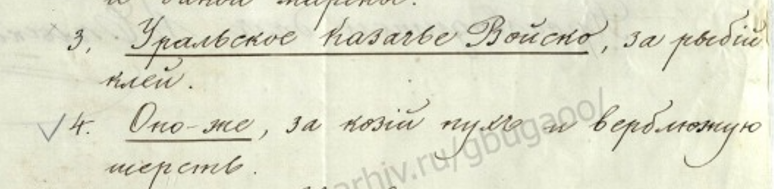 и ... марены.
3, Уральское Казачье Войско, за рыбій
клей.
✓ 4. Оно-же, за козій пухъ и верблюжую
шерсть.
arhiv.ru/gbugaoo/